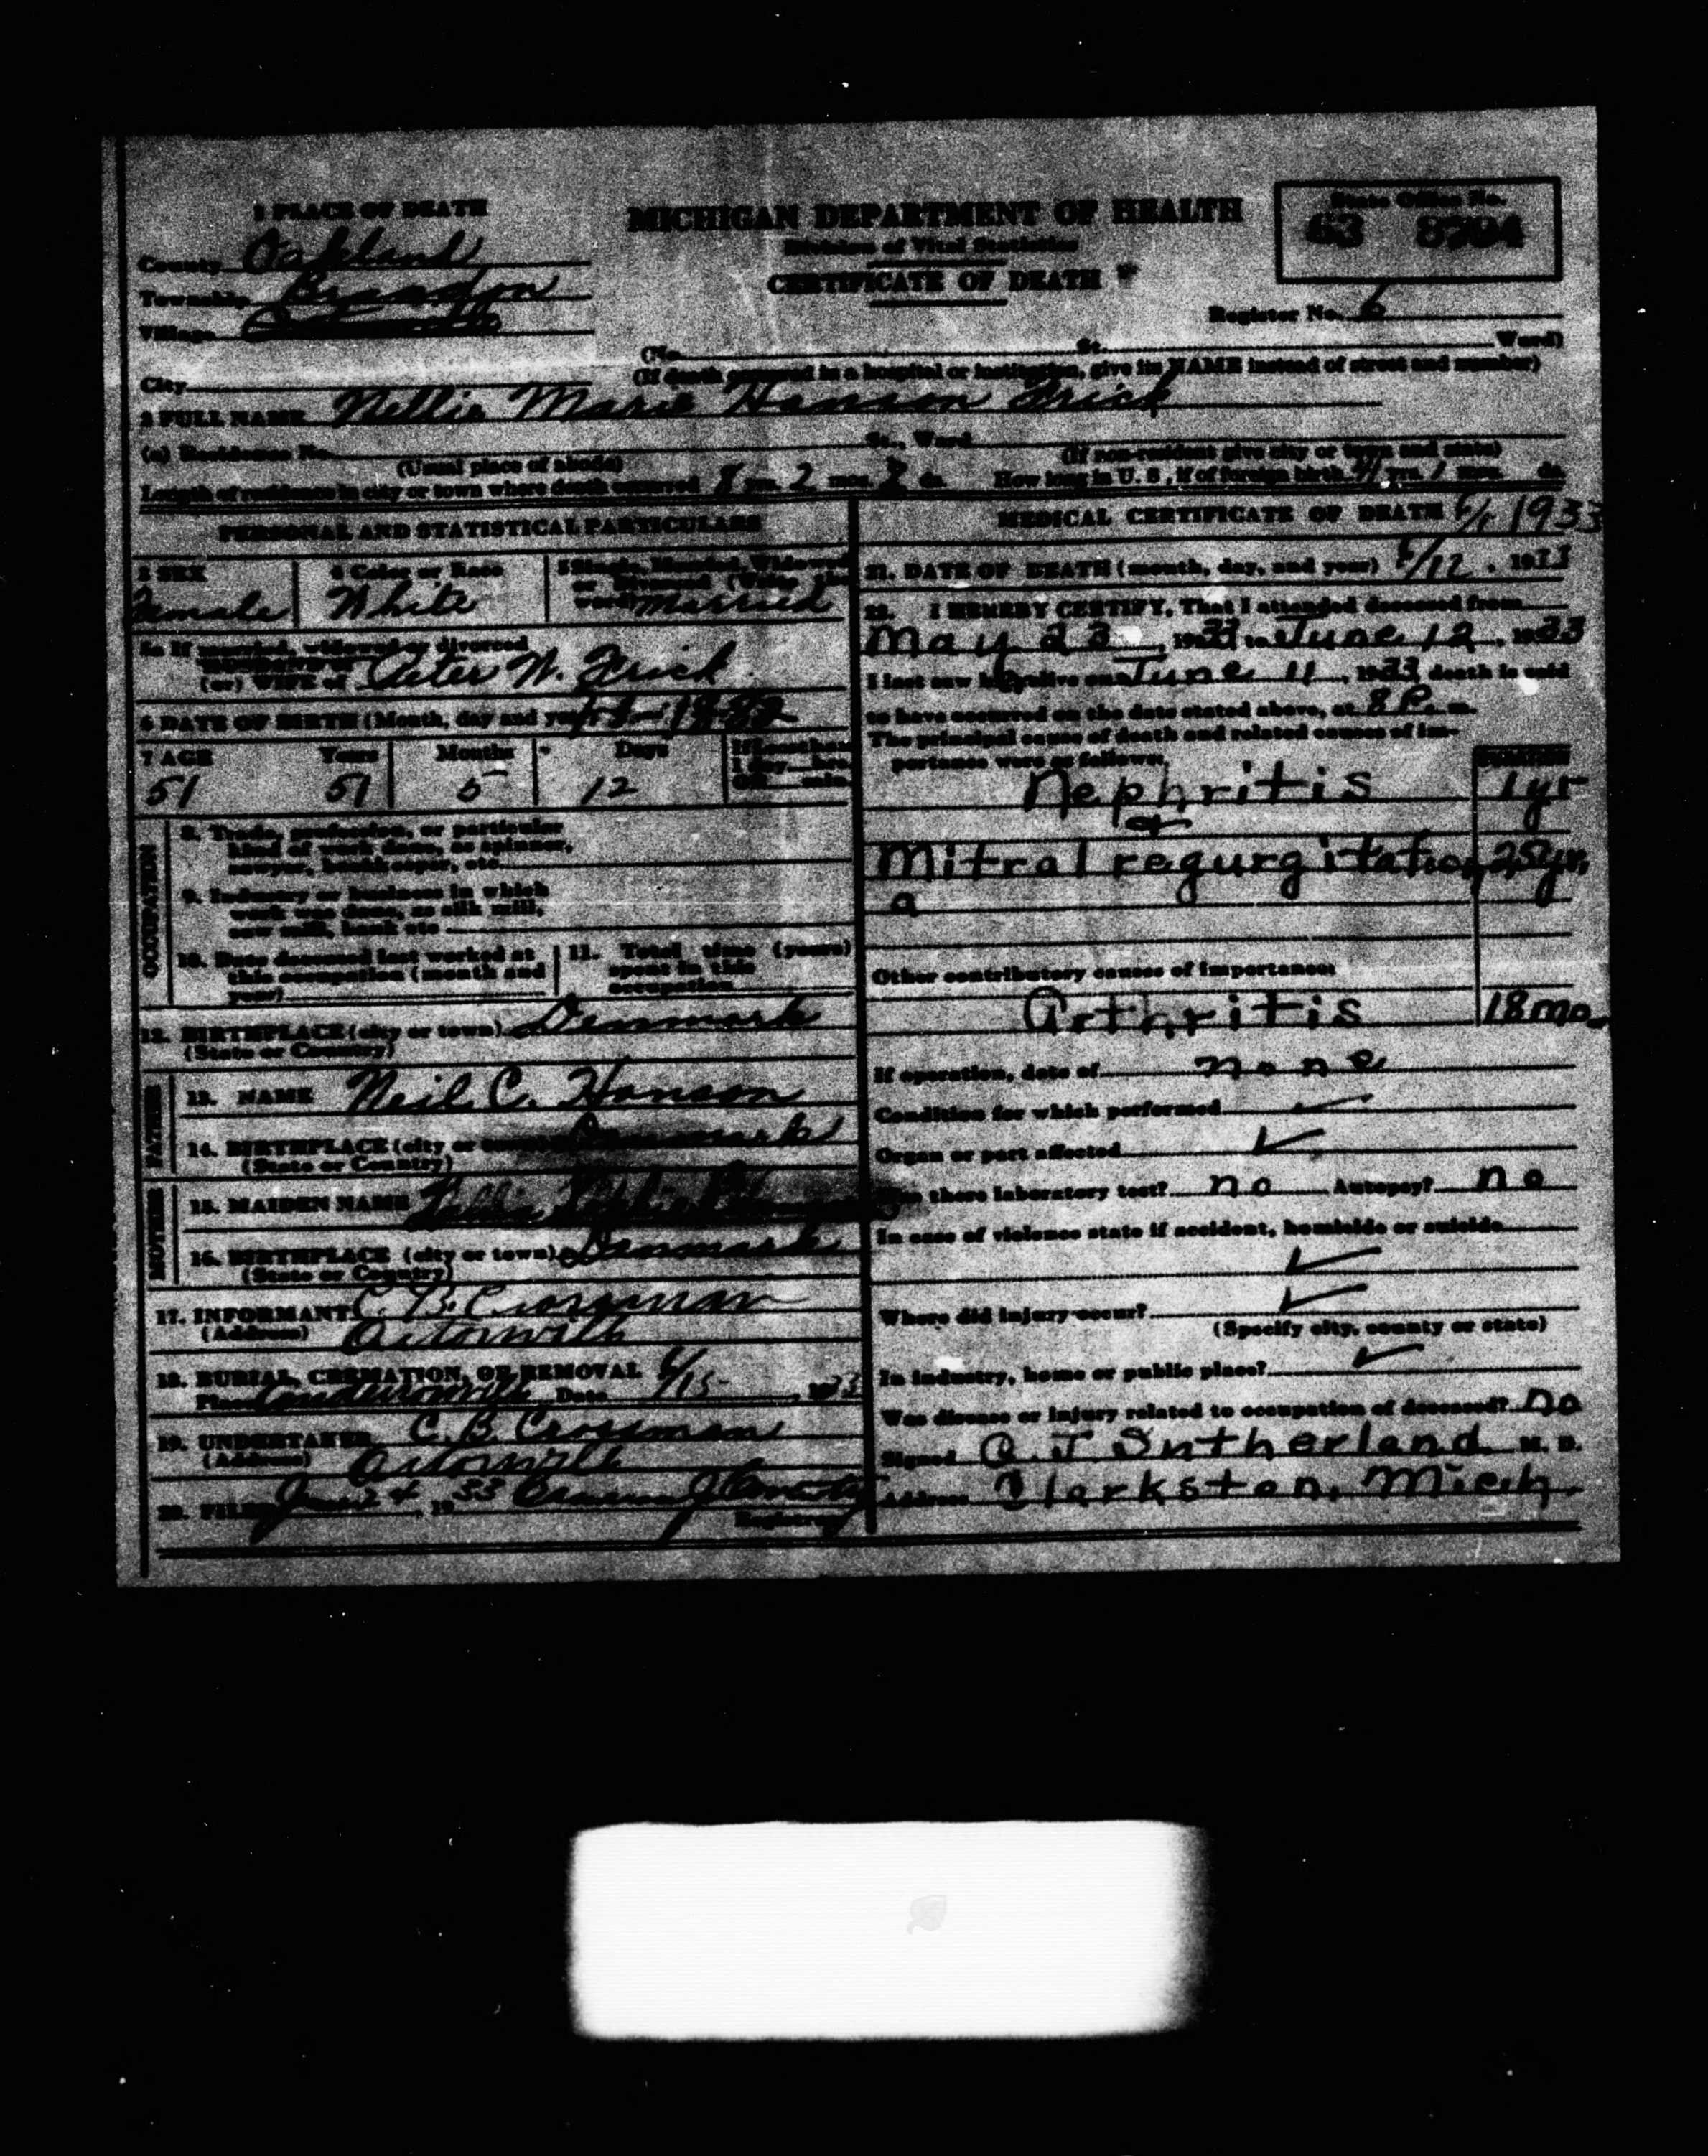 1 PLACE OF DEATH
County Oakland
Township Brandon
Village
City
MICHIGAN DEPARTMENT OF HEALTH
Division of Vital Statistics
CERTIFICATE OF DEATH
State Office No.
63
Register No. 6
(No. St. Ward)
(If death occurred in a hospital or institution, give its NAME instead of street and number)
2 FULL NAME Nellie Marie Hanson Frick
(a) Residence No. St., Ward
(Usual place of abode) (If non-resident give city or town and state)
Length of residence in city or town where death occurred 8 yrs. 2 mos. ds. How long in U. S., if of foreign birth yrs. 1 mos. ds.
PERSONAL AND STATISTICAL PARTICULARS
3 SEX
Female
4 Color or Race
White
5 Single, Married, Widowed
or Divorced (Write the
word) Married
5a If married, widowed or divorced
HUSBAND of
(or) WIFE of Peter W. Frick
6 DATE OF BIRTH (Month, day and year) 1882
7 AGE Years Months Days If Less than
1 day, hrs.
51 51 5 12 OR min.
OCCUPATION
8. Trade, profession, or particular
kind of work done, as spinner,
sawyer, bookkeeper, etc.
9. Industry or business in which
work was done, as silk mill,
saw mill, bank etc
10. Date deceased last worked at
this occupation (month and
year)
11. Total time (years)
spent in this
occupation
12. BIRTHPLACE (city or town) Denmark
(State or Country)
FATHER
13. NAME Neil C. Hanson
14. BIRTHPLACE (city or town) Denmark
(State or Country)
MOTHER
15. MAIDEN NAME
16. BIRTHPLACE (city or town) Denmark
(State or Country)
17. INFORMANT C. B. Crossman
(Address) Ortonville
18. BURIAL, CREMATION, OR REMOVAL
Place Date 6/15 1933
19. UNDERTAKER C. B. Crossman
(Address) Ortonville
20. FILED June 24, 1933
Registrar
MEDICAL CERTIFICATE OF DEATH 1933
21. DATE OF DEATH (month, day, and year) 6/12, 1933
22. I HEREBY CERTIFY, That I attended deceased from
May 23, 1933 to June 12, 1933
I last saw h alive on June 11, 1933 death is said
to have occurred on the date stated above, at 8 P. m.
The principal cause of death and related causes of im-
portance were as follows:
DURATION
Nephritis 1 yr
&
Mitral regurgitation 25 yr.
a
Other contributory causes of importance:
Arthritis 18 mo.
If operation, date of none
Condition for which performed ✓
Organ or part affected ✓
Was there laboratory test? no Autopsy? no
In case of violence state if accident, homicide or suicide
✓
Where did injury occur? ✓
(Specify city, county or state)
In industry, home or public place? ✓
Was disease or injury related to occupation of deceased? no
Signed C. J. Sutherland M. D.
Address Clarkston, Mich.